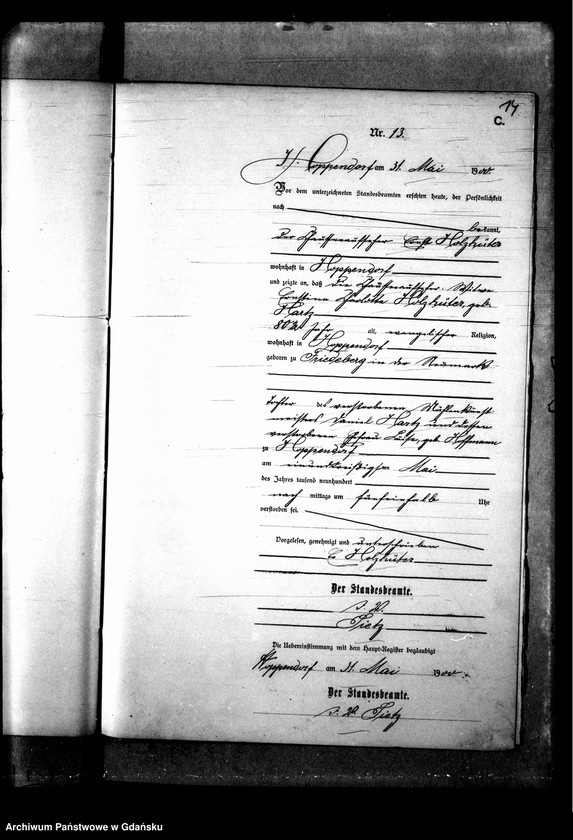 14
C.
Nr. 13.
Hoppendorf am 31. Mai 1900
Vor dem unterzeichneten Standesbeamten erschien heute, der Persönlichkeit
nach
bekannt,
der Chausseeaufseher Ernst Holzhüter
wohnhaft in Hoppendorf
und zeigte an, daß die Chausseeaufseher-Witwe
Charlotte Holzhüter, geb.
Hartz
80 ½ Jahr alt, evangelischer Religion,
wohnhaft in Hoppendorf
geboren zu Friedeberg in der Neumark
Tochter des verstorbenen
meisters Daniel Hartz und dessen
verstorbenen Ehefrau Luise, geb. Hoffmann
zu Hoppendorf
am einunddreißigsten Mai
des Jahres tausend neunhundert
nach mittags um fünfeinhalb Uhr
verstorben sei.
Vorgelesen, genehmigt und unterschrieben
E. Holzhüter
Der Standesbeamte.
I. V.
Tietz
Die Uebereinstimmung mit dem Haupt-Register beglaubigt
Hoppendorf am 31. Mai 1900.
Der Standesbeamte.
I. V. Tietz
Archiwum Państwowe w Gdańsku